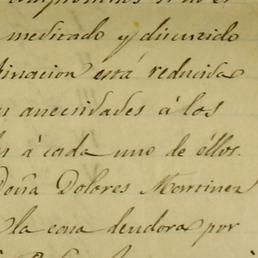 meditado y discutido
está reducida
necesidades á los
á cada uno de éllos.
Doña Dolores Martinez
la casa deudora por